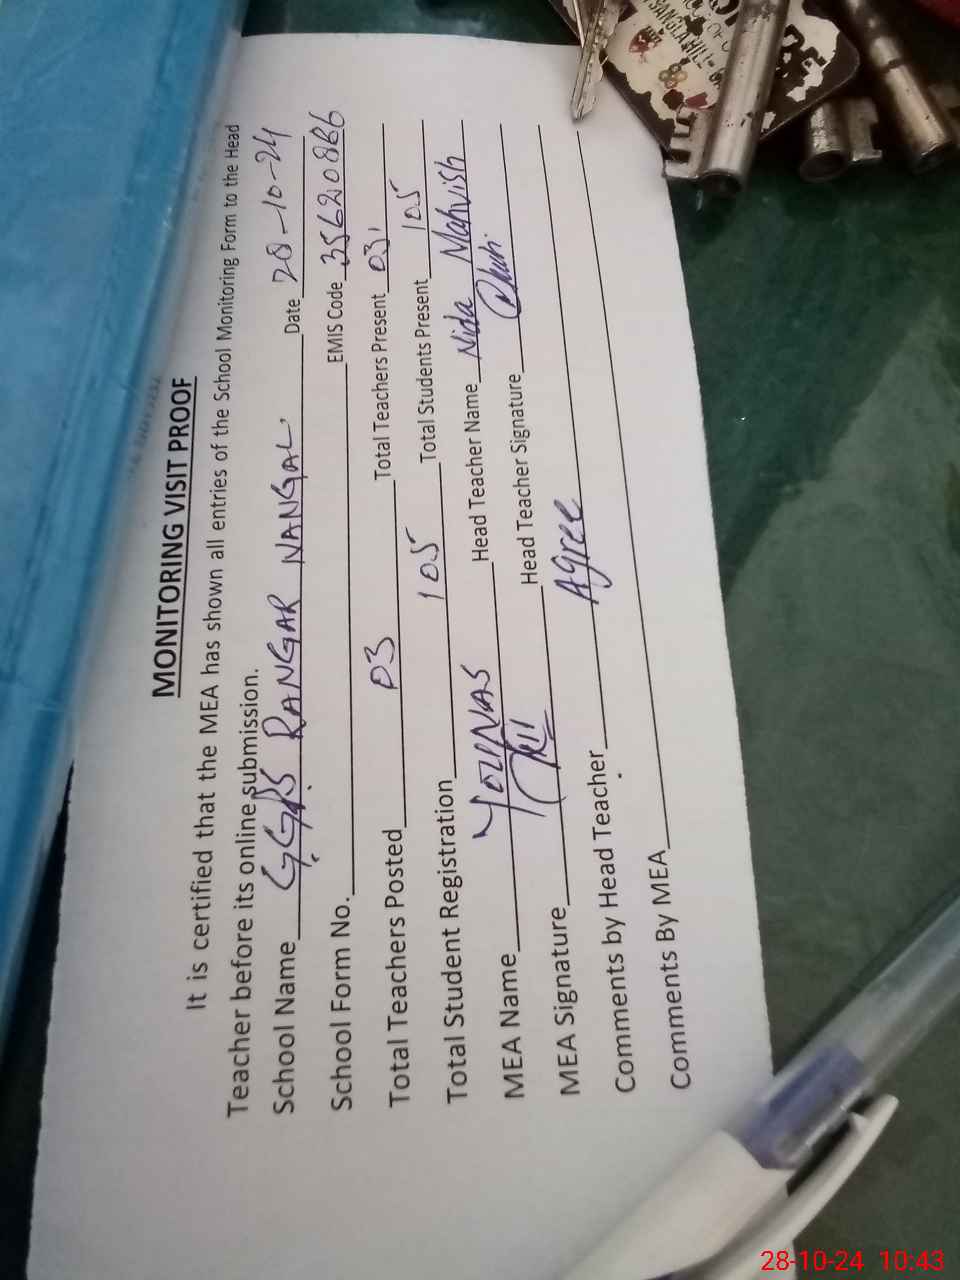 MONITORING VISIT PROOF
It is certified that the MEA has shown all entries of the School Monitoring Form to the Head
Teacher before its online submission.
School Name GGPS RANGAR NANGAL. Date 28-10-24
School Form No. EMIS Code 35620866
Total Teachers Posted 03 Total Teachers Present 03
Total Student Registration 105 Total Students Present 105
MEA Name YOUNAS Head Teacher Name Nida Mahvish
MEA Signature Head Teacher Signature
Comments by Head Teacher Agree
Comments By MEA
SANGLA HILL
28-10-24 10:43